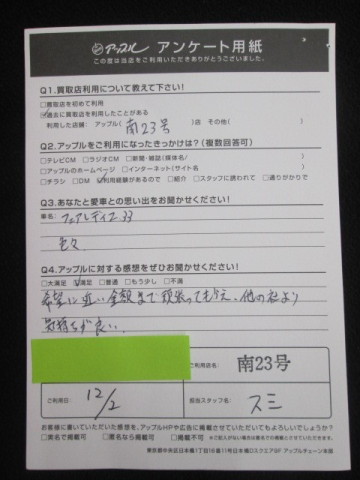 アップル アンケート用紙
この度は当店をご利用いただきありがとうございました。
Q1.買取店利用について教えて下さい!
□買取店を初めて利用
☑過去に買取店を利用したことがある
利用した店舗: アップル( 南23号 )店 その他( )
Q2.アップルをご利用になったきっかけは?(複数回答可)
□テレビCM □ラジオCM □新聞・雑誌(媒体名/ )
□アップルのホームページ □インターネット(サイト名 )
□チラシ □DM ☑利用経験があるので □紹介 □スタッフに誘われて □通りがかりで
Q3.あなたと愛車との思い出をお聞かせください!
車名: フェアレディZ 33
色々
Q4.アップルに対する感想をぜひお聞かせください!
□大満足 ☑満足 □普通 □もう少し □不満
希望に近い金額まで頑張ってもらえ、他の社より
気持ちが良い。
ご利用店名: 南23号
ご利用日: 12/2
担当スタッフ名: スミ
お客様に書いていただいた感想を、アップルHPや広告に掲載させていただいてもよろしいでしょうか?
□実名で掲載可 □匿名なら掲載可 □掲載不可 ※ご記入がない場合は匿名での掲載とさせていただきます。
東京都中央区日本橋1丁目16番11号日本橋Dスクエア9F アップルチェーン本部